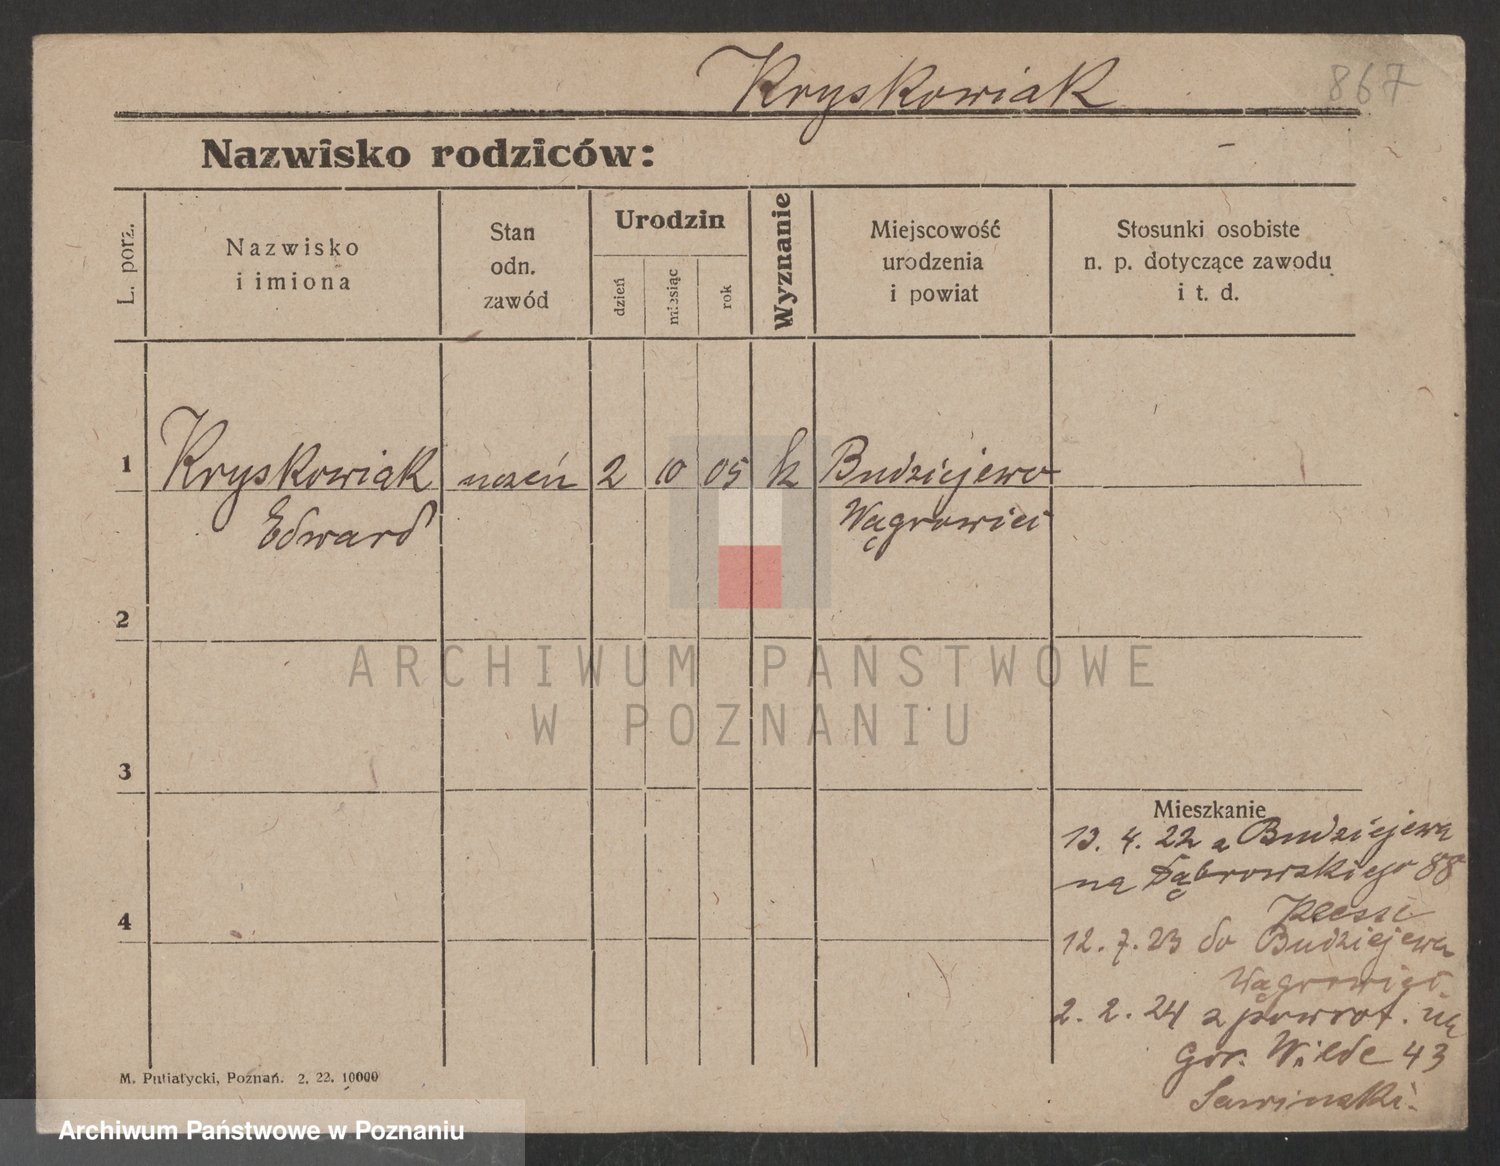 Kryskowiak
867
Nazwisko rodziców:
L. porz.
Nazwisko
i imiona
Stan
odn.
zawód
Urodzin
dzień
miesiąc
rok
Wyznanie
Miejscowość
urodzenia
i powiat
Stosunki osobiste
n. p. dotyczące zawodu
i t. d.
1 Kryskowiak uczeń 2 10 05 k Budziejewo
Edward Wągrowiec
2
3
Mieszkanie
13. 4. 22 z Budziejewa
na Dąbrowskiego 88
4
12. 7. 23 do Budziejewa
Wągrowiec
2. 2. 24 z powrot. na
Gór. Wilde 43
M. Putiatycki, Poznań. 2. 22. 10000
ARCHIWUM PAŃSTWOWE
W POZNANIU
Archiwum Państwowe w Poznaniu